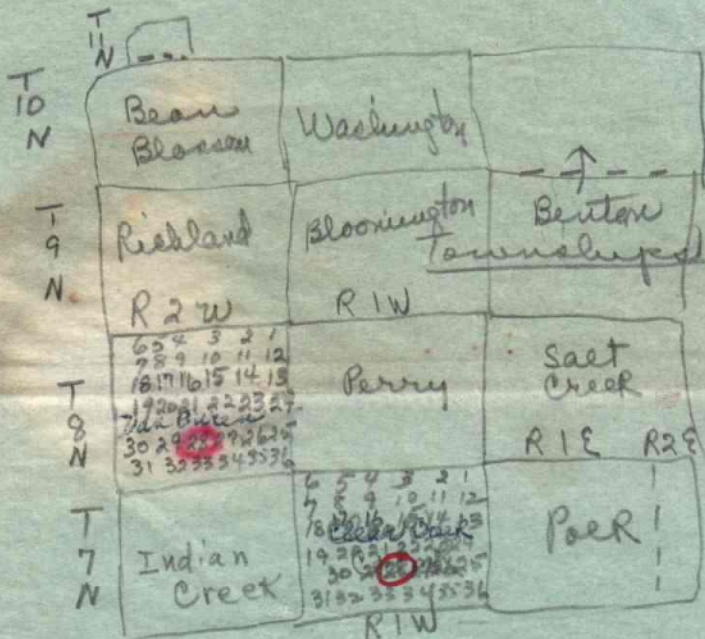 T
11
N
T
10
N
Bean
Blossom
Washington
T
9
N
Richland
Bloomington
Benton
Townships
R 2 W
R 1 W
T
8
N
6 5 4 3 2 1
7 8 9 10 11 12
18 17 16 15 14 13
19 20 21 22 23 24
Van Buren
30 29 28 27 26 25
31 32 33 34 35 36
Perry
Salt
Creek
R 1 E R 2 E
T
7
N
Indian
Creek
6 5 4 3 2 1
7 8 9 10 11 12
18 13
Clear Creek
19 20 21
30 25
31 32 33 34 35 36
R 1 W
Polk